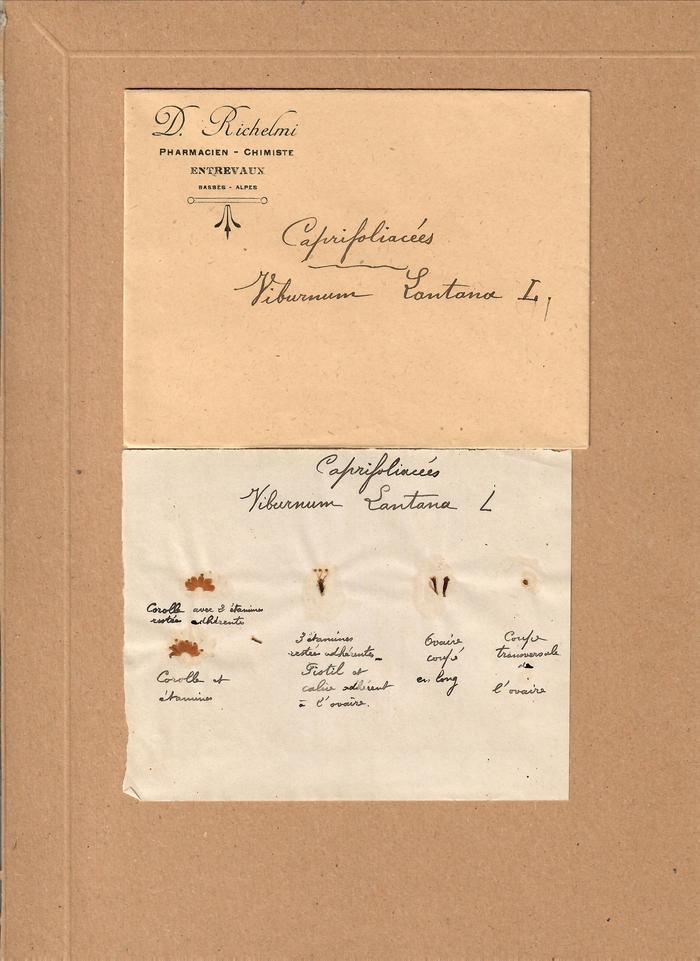 D. Richelmi
PHARMACIEN - CHIMISTE
ENTREVAUX
BASSES - ALPES
Caprifoliacées
Viburnum Lantana L.
Caprifoliacées
Viburnum Lantana L
Corolle avec 2 étamines
restées adhérentes
Corolle et
étamines
3 étamines
restées adhérentes.
Pistil et
calice adhérent
à l'ovaire.
Ovaire
coupé
en long
Coupe
transversale
de
l'ovaire